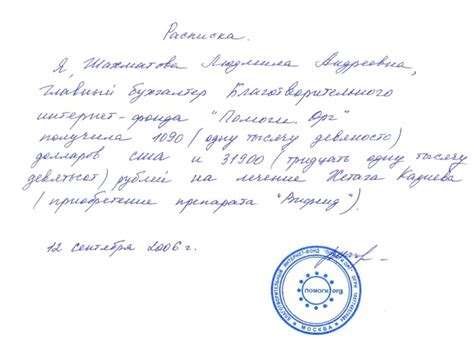 Расписка.
Я, Шахматова Людмила Андреевна,
главный бухгалтер Благотворительного
интернет-фонда "Помоги. Орг"
получила 1090 (одну тысячу девяносто)
долларов сша и 31900 (тридцать одну тысячу
девятьсот) рублей на лечение Хетага Кадиева
(приобретение препарата "Вифенд").
12 сентября 2006 г.
БЛАГОТВОРИТЕЛЬНЫЙ ИНТЕРНЕТ-ФОНД "ПОМОГИ.ОРГ" ОГРН
ПОМОГИ.org
МОСКВА